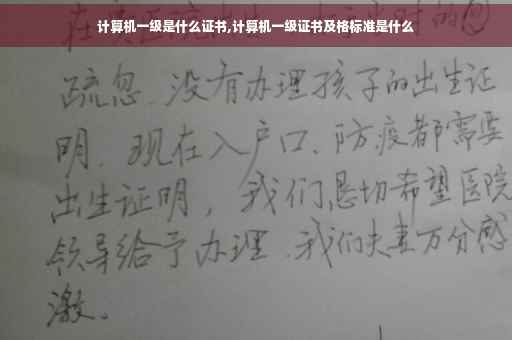 计算机一级是什么证书,计算机一级证书及格标准是什么
疏忽.没有办理孩子的出生证
明.现在入户口、防疫都需要
出生证明，我们恳切希望医院
领导给予办理.我们夫妻万分感
激。